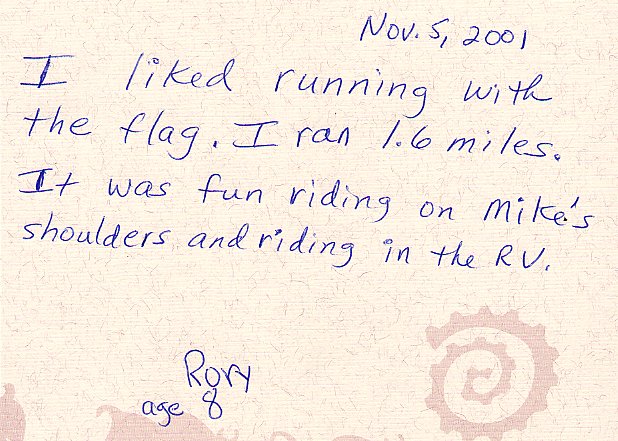 Nov. 5, 2001
I liked running with
the flag. I ran 1.6 miles.
It was fun riding on Mike's
shoulders and riding in the RV.
Rory
age 8